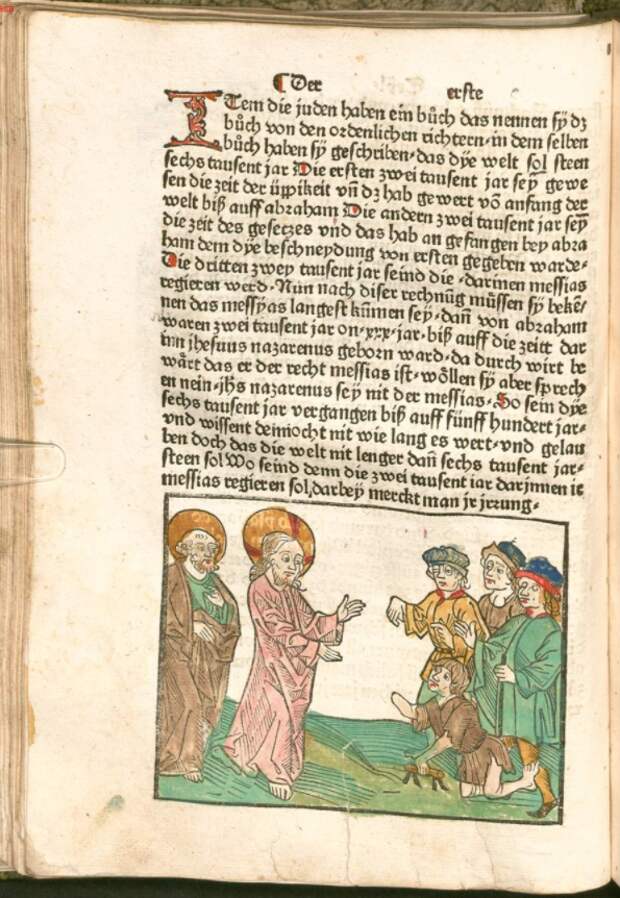 Der erste
ITem die juden haben ein bůch das nennen sÿ dz
bůch von den ordenlichen richtern· in dem selben
bůch haben sÿ geschriben· das dÿe welt sol steen
sechs tausent jar Die ersten zwei tausent jar seÿ gewe
sen die zeit der üppikeit vñ dz hab gewert võ anfang der
welt biß auff abraham Die andern zwei tausent jar seÿ
die zeit des gesetzes vnd das hab an gefangen bey abra
ham dem dÿe beschneydung von ersten gegeben warde·
Die dritten zwey tausent jar seind die· darinen messias
regieren werd· Nun nach diser rechnũg müssen sÿ bekẽ/
nen das messÿas langest kũmen sey· dañ von abraham
waren zwei tausent jar on· xxx· jar· biß auff die zeitt dar
inn jhesuus nazarenus geborn ward· da durch wirt be
wärt das er der recht messias ist· wöllen sÿ aber sprech
en nein· jhs nazarenus seÿ nit der messias· So sein dÿe
sechs tausent jar vergangen biß auff fünff hundert jar·
vnd wissent dennocht nit wie lang es wert· vnd gelau
ben doch das die welt nit lenger dañ sechs tausent jar·
steen sol Wo seind denn die zwei tausent iar darjnnen ir
messias regieren sol, darbey merckt man jr jrzung·